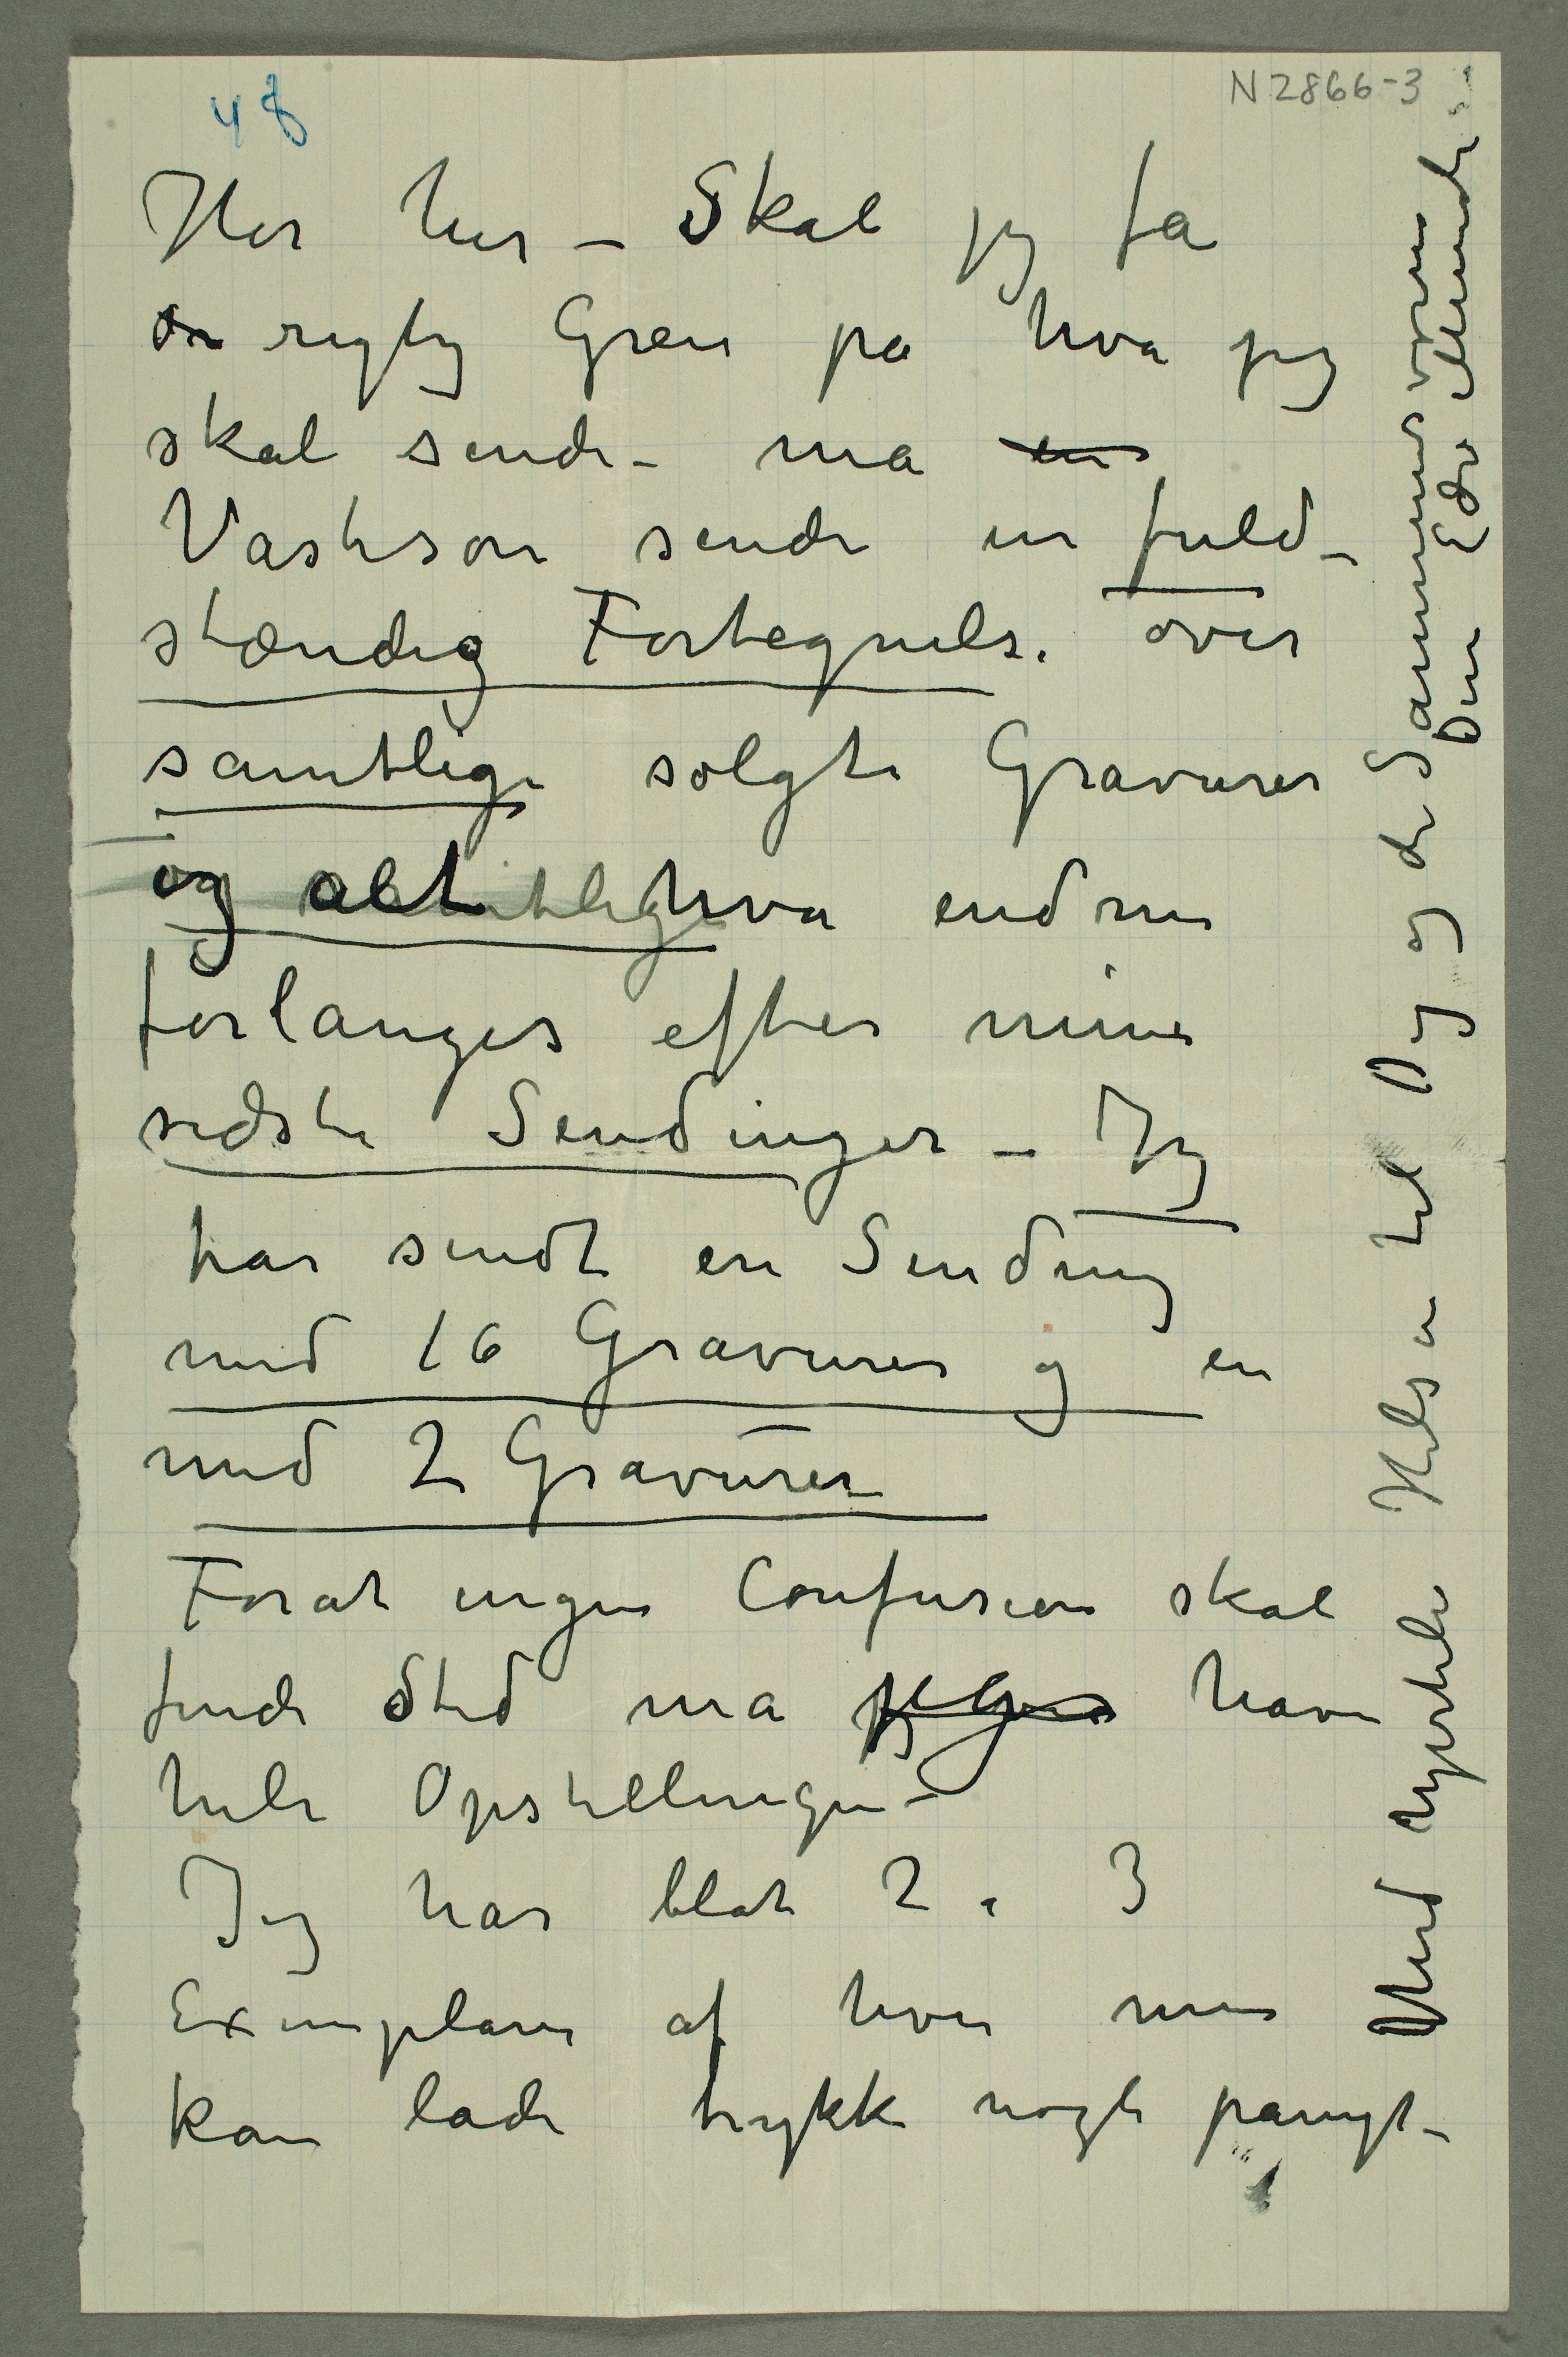 48
N 2866-3
Hør her – Skal jeg få
en rigtig Gren på hva jeg
skal sende – må en
Vastesson sende en fuld-
stændig Fortegnelse over
samtlige solgte Gravurer
og alt hva endnu
forlanges efter mine
sidste Sendinger – Jeg
har sendt en Sending
med 16 Gravurer og en
med 2 Gravurer –
Forat ingen Confusion skal
finde Sted må jeg have
hele Opstillingen –
Jeg har blot 2 a 3
Exemplarer af hver men
kan lade trykke nogle pånyt –
Med hjertelig Hilsen til Dig og de Sammensvorne
Din Edv Munch